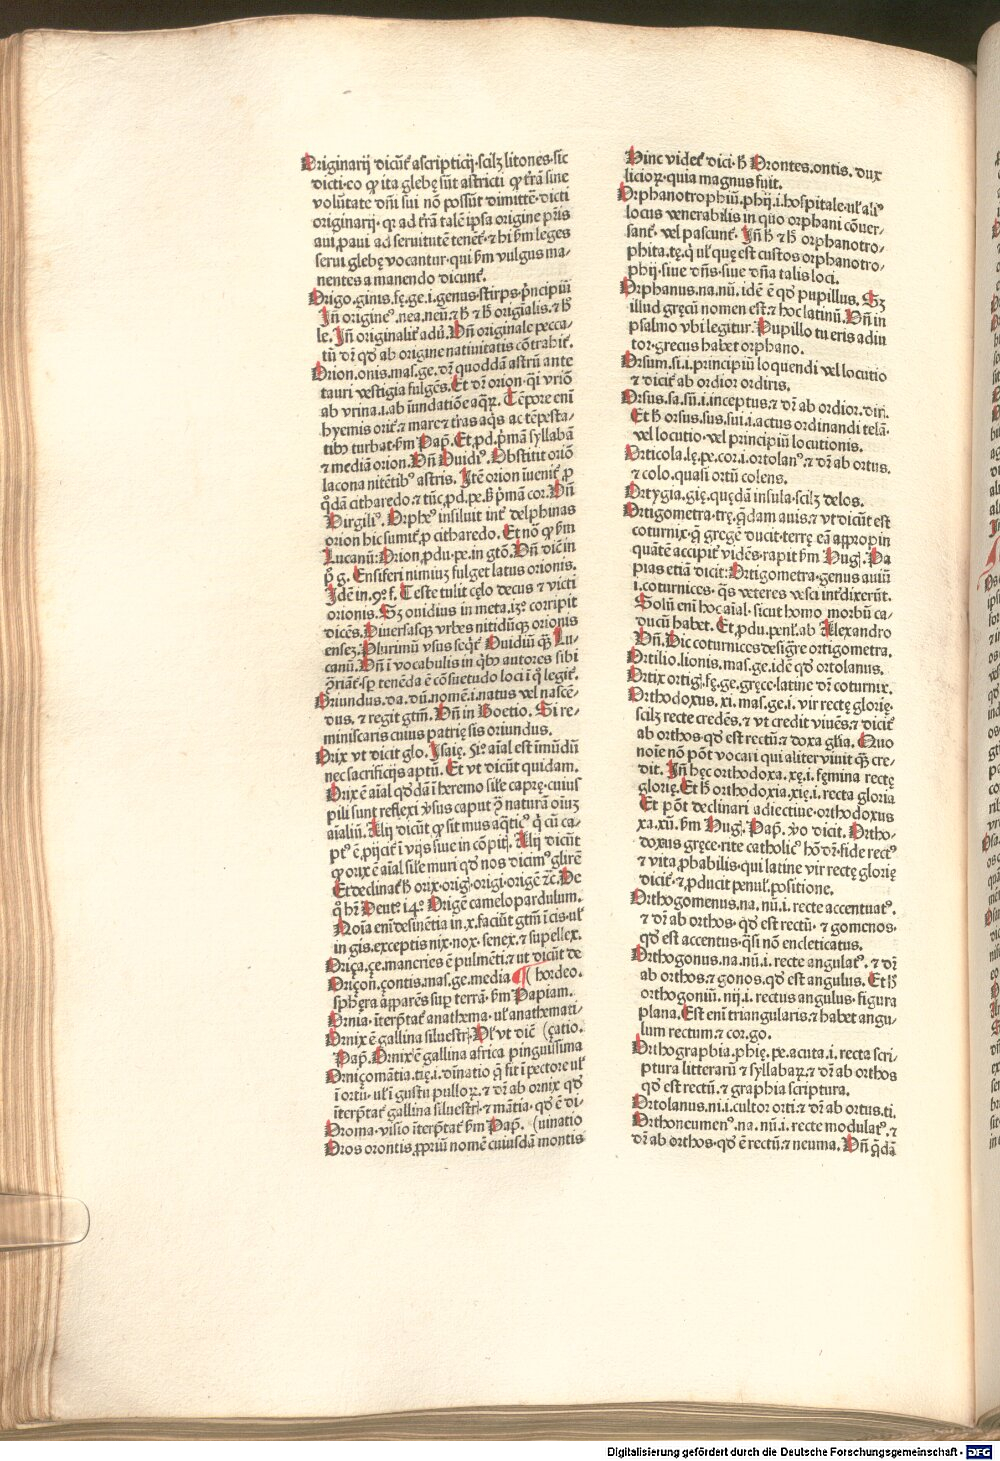 Originarij dicũt᷑ ascripticij·scilꝫ litones·sic
dicti·eo ꝙ ita glebę sũt astricti ꝙ t᷑rã sine
volũtate dñi sui nõ possũt dimitte᷑·dicti
originarij·qꝛ ad t᷑rã talẽ ipsa origine pr̃is
aui,ꝓaui ad seruitutẽ tenẽt᷑·⁊ hi ẜm leges
serui glebę vocantur·qui ẜm vulgus ma-
nentes a manendo dicunt᷑.
Origo.ginis.fę.ge.i.genus·stirps·pͥncipiũ
Jñ originẽꝰ.nea.neũ.⁊ ħ ⁊ ħ origĩalis.⁊ ħ
le. Jñ originalit᷑ adũ. Vñ originale pecca-
tũ dꝛ̃ qd̛ ab origine natiuitatis cõtrahit᷑.
Orion.onis.mas.ge.dꝛ̃ quoddã astrũ ante
tauri vestigia fulgẽs. Et dꝛ̃ orion·q̃i vriõ
ab vrina.i.ab ĩundatiõe aqꝝ. Tẽpore enĩ
hyemis orit᷑.⁊ mare ⁊ t᷑ras aq̃s ac tẽpesta-
tibꝰ turbat·ẜm Pap̃. Et,ꝓd.pͥmã syllabã
⁊ mediã orion. Vñ Ouidiꝰ. Obstitit oriõ
lacona nitẽtibꝰ astris. Jtẽ orion ĩuenit᷑ ꝓ
q̊dã citharedo.⁊ tũc,ꝓd.pe.ẜ pͥmã cor. Vñ
Virgiliꝰ. Orpheꝰ insiluit int᷑ delphinas
orion hic sumit᷑ ꝓ citharedo. Et nõ ꝙ ẜm
Lucanũ: Orion,ꝓdu·pe.in gtõ. Vñ dicit᷑ in
pͥ g. Ensiferi nimiuꝫ fulget latus orionis.
Jdẽ in.9º.f. Teste tulit cęlo decus ⁊ victi
orionis. Sꝫ ouidius in meta.13º.corripit
dicẽs. Diuersasqꝫ vrbes nitidũqꝫ orionis
ensez. Plurimũ vsus seqt᷑ Ouidiũ q̃ꝫ Lu-
canũ. Vñ ĩ vocabulis in q̊bꝰ autores sibi
ꝯ̃riãt᷑·sp̃ tenẽda ẽ cõsuetudo loci ĩ q̊ legit᷑.
Oriundus.da.dũ.nomẽ.i.natus vel nascẽ-
dus. ⁊ regit gtm̃. Vñ in Boetio. Si re-
miniscaris cuius patrię sis oriundus.
Orix vt dicit glo. Jsaię. 51º aĩal est ĩmũdũ
nec sacrificijs aptũ. Et vt dicũt quidam.
Orix ẽ aĩal qd̛dã ĩ heremo sil̃e caprę·cuius
pili sunt reflexi vsus caput ꝯ̃ naturã oĩuꝫ
aĩaliũ. Alij dicũt ꝙ sit mus aq̃ticꝰ q̊ cũ ca-
ptꝰ ẽ,pijcit᷑ ĩ vijs siue in cõpitꝭ. Alij dicũt
ꝙ orix ẽ aĩal sil̃e muri qd̛ nos dicimꝰ glirẽ
Et declinat᷑ ħ orix·origꝭ·origi·origẽ ⁊c. De
q̊ hr̃ Deut᷑º 14º. Origẽ camelopardulum.
Noĩa enĩ desinẽtia in.x.faciũt gtm̃ ĩ cis·ul̃
in gis.exceptis nix·nox·senex.⁊ supellex.
Oriça.çe.mancries ẽ pulmẽti.⁊ ut dicũt de
Oriçõn.çontis.mas.ge.media ¶ hordeo.
sphęra apparẽs sup̱ terrã·ẜm Papiam.
Ornia·ĩterp̃tat᷑ anathema·ul̃ anathemati-
Ornix ẽ gallina siluestrꝭ. Ul̃ vt dicit᷑ (çatio.
Pap̃. Ornix ẽ gallina africa pinguissima
Orniçomãtia.tię.i.diuinatio q̃ fit ĩ pectore ul̃
ĩ ortu·ul̃ ĩ gustu pulloꝝ.⁊ dꝛ̃ ab ornix qd̛
ĩterp̃tat᷑ gallina siluestrꝭ·⁊ mãtia·qd̛ ẽ di-
Oroma·visio ĩterp̃tat᷑ ẜm Pap̃. (uinatio
Oros orontis,ꝓpriũ nomẽ cuiusdã montis
Hinc videt᷑ dici·ħ Orontes.ontis. dux
licioꝝ·quia magnus fuit.
Orphanotrophiũ.phij.i.hospitale·ul̃ aliꝰ
locus venerabilis in quo orphani cõuer-
sant᷑·vel pascunt᷑. Jñ ħ ⁊ ħ orphanotro-
phita.tę.q̊ ul̃ quę est custos orphanotro-
phij·siue dñs·siue dña talis loci.
Orphanus.na.nũ.idẽ ẽ qd̛ pupillus. Sꝫ
illud gręcũ nomen est.⁊ hoc latinũ. Vñ in
psalmo vbi legitur. Pupillo tu eris adiu
tor·grecus habet orphano.
Orsum.si.i.principiũ loquendi vel locutio
⁊ dicit᷑ ab ordior ordiris.
Orsus.sa.sũ.i.inceptus.⁊ dꝛ̃ ab ordior.diri.
Et ħ orsus.sus.sui.i.actus ordinandi telã·
vel locutio·vel principiũ locutionis.
Orticola.lę.pe.cor.i.ortolanꝰ.⁊ dꝛ̃ ab ortus.
⁊ colo.quasi ortũ colens.
Ortygia.gię.quędã insula·scilꝫ delos.
Ortigometra·trę.q̃dam auis.⁊ vt dicũt est
coturnix·q̃ gregẽ ducit·terrę eã appropin
quãtẽ accipit᷑ vidẽs·rapit ẜm Hug̃. Pa
pias etiã dicit: Ortigometra·genus auiũ
.i.coturnices·q̃s veteres vesci int᷑dixerũt.
Solũ enĩ hoc aĩal·sicut homo morbũ ca-
ducũ habet. Et,ꝓdu.penł.ab Alexandro
Vñ. Dic coturnices desig̃re ortigometra.
Ortilio.lionis.mas.ge.idẽ qd̛ ortolanus.
Ortix ortigꝭ.fę.ge.gręce·latine dꝛ̃ coturnix.
Orthodoxus. xi. mas.ge.i. vir rectę glorię.
scilꝫ recte credẽs.⁊ vt credit viuẽs.⁊ dicit᷑
ab orthos·qd̛ est rectũ.⁊ doxa gl̃ia. Quo
noĩe nõ põt vocari qui aliter viuit q̃ꝫ cre-
dit. Jñ hęc orthodoxa.xę.i.fęmina rectę
glorię. Et ħ orthodoxia.xię.i.recta gloria
Et põt declinari adiectiue·orthodoxus
xa.xũ.ẜm Hug̃. Pap̃. vo dicit. Ortho-
doxus gręce·rite catholicꝰ hõ dꝛ̃·fide rectꝰ
⁊ vita ꝓbabilis·qui latine vir rectę glorię
dicit᷑·⁊,ꝓducit penul̃.positione.
Orthogomenus.na. nũ.i. recte accentuatꝰ.
⁊ dꝛ̃ ab orthos· qd̛ est rectũ· ⁊ gomenos·
qd̛ est accentus·q̃si nõ encleticatus.
Orthogonus.na.nũ.i. recte angulatꝰ. ⁊ dꝛ̃
ab orthos.⁊ gonos.qd̛ est angulus. Et ħ
orthogoniũ. nij.i. rectus angulus· figura
plana. Est enĩ triangularis.⁊ habet angu-
lum rectum.⁊ cor.go.
Orthographia.phię.pe.acuta.i.recta scri-
ptura litterarũ ⁊ syllabaꝝ.⁊ dꝛ̃ ab orthos
qd̛ est rectũ.⁊ graphia scriptura.
Ortolanus.ni.i.cultor orti.⁊ dꝛ̃ ab ortus.ti.
Orthoneumenꝰ.na. nũ.i. recte modulatꝰ.⁊
dꝛ̃ ab orthos·qd̛ ẽ rectũ.⁊ neuma. Vñ q̃dã